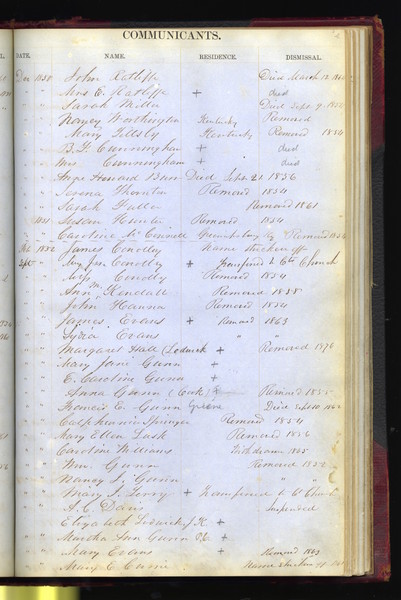 COMMUNICANTS.
DATE. NAME. RESIDENCE. DISMISSAL.
Dec 1850 John Ratliffe Died March 12
" " Mrs E. Ratliffe + died
" " Sarah Miller Died Sept 9
" " Nancy Worthington Kentucky Removed
" " Mary Kentucky Removed 1854
" " B. F. Cunningham + died
" " Mrs Cunningham + died
" " Howard Died Sept. 21 1856
" " Serena Thornton Removed 1854
" " Sarah Fuller Removed 1861
" 1851 Susan Hunter Removed 1854
" " Caroline Mc Connell Removed
1852 James Conolly Name stricken off
Sept " Conolly + Transfered to 6th Church
" " Conolly Removed 1854
" " Ann M. Kendall Removed 1855
" " John Hanna Removed 1854
" " James Evans + Removed 1863
" " Lydia Evans " "
" " Margaret Hall (Lodwick + Removed 1878
" " Mary Jane Gunn +
" " E. Caroline Gunn +
" " Anna Gunn (Cook) Removed 1855
" " Francis E. Gunn Died Sept 10
" " Springer Removed 1854
" " Mary Ellen Lusk Removed 1856
" " Caroline Williams Withdrawn 1855
" " Wm. Gunn Removed
" " Nancy Gunn " "
" " Mary S. Terry + Transfered to 6th Church
" " A. C. Davis Suspended
" " Elizabeth Lodwick +
" " Martha Ann Gunn +
" " Mary Evans + Removed 1863
" " Mary C. Name stricken off